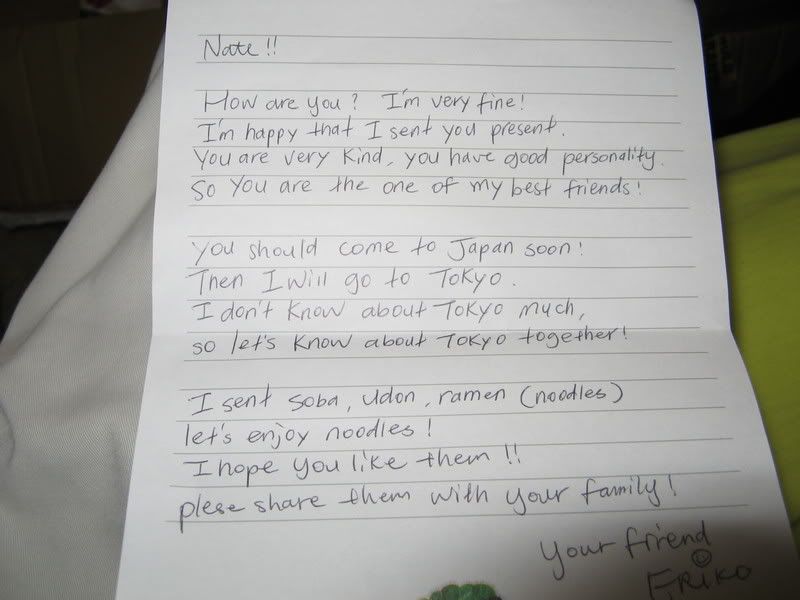 Nate!!
How are you? I'm very fine!
I'm happy that I sent you present.
You are very kind, you have good personality.
So you are the one of my best friends!
You should come to Japan soon!
Then I will go to Tokyo.
I don't know about Tokyo much,
so let's know about Tokyo together!
I sent soba, udon, ramen (noodles)
let's enjoy noodles!
I hope you like them!!
plese share them with your family!
your friend
ERIKO